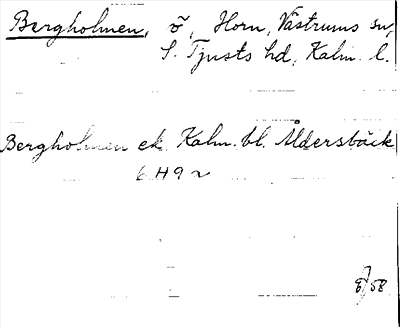 Bergholmen, ö, Horn, Västrums sn,
S. Tjusts hd, Kalm. l.
Bergholmen ek. Kalm. bl. Åldersbäck
6 H 9 ~
8/58